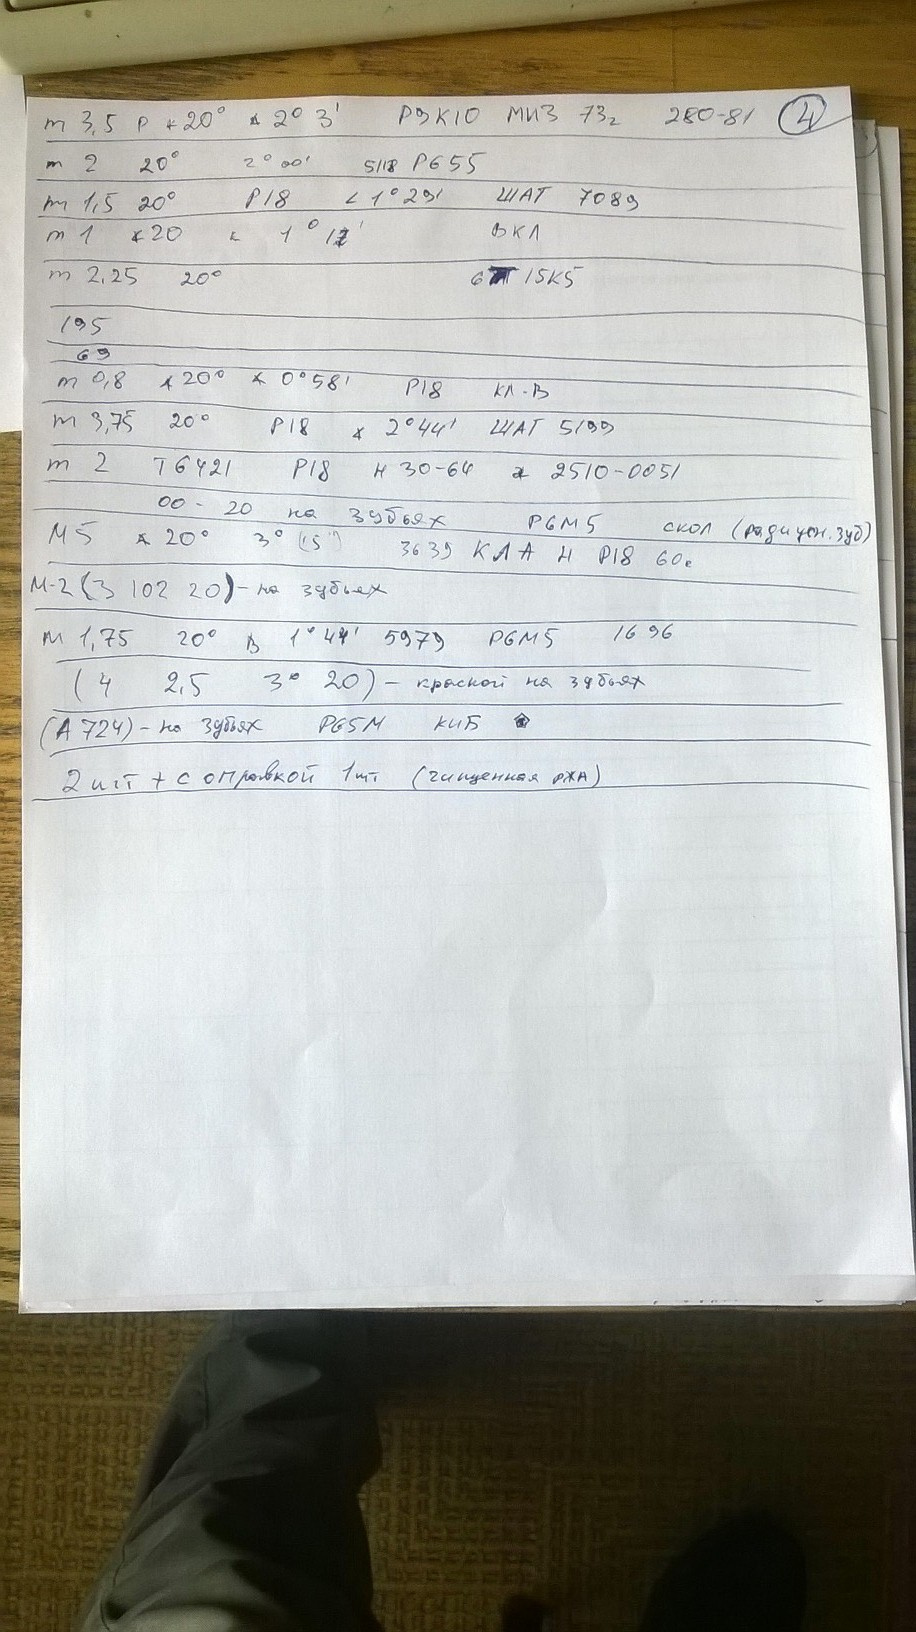 m 3,5 P ∢20° ∢ 2° 3' Р9К10 МИЗ 73г 280-81 4
m 2 20° 2°00' 5118 Р6
m 1,5 20° Р18 ∠1°29' ШАТ 7089
m 1 ∢20 ∢ 1° ВКЛ
m 2,25 20° 6 15К5
195
69
m 0,8 ∢20° ∢ 0°58' Р18 КЛ-В
m 3,75 20° Р18 ∢ 2°44' ШАТ 5199
m 2 Т6421 Р18 Н 30-64 ∢ 2510-0051
00 - 20 на зубьях Р6М5 скол
М5 ∢ 20° 3° (5') 3639 КЛ А Н Р18 60г
М-2 (3 102 20) - на зубьях
М 1,75 20° В 1°44' 5979 Р6М5 1696
(4 2,5 3° 20) - краской на зубьях
(А 724) - на зубьях Р65М КИБ
2 шт + с оправкой 1 шт (чищенная ржа)